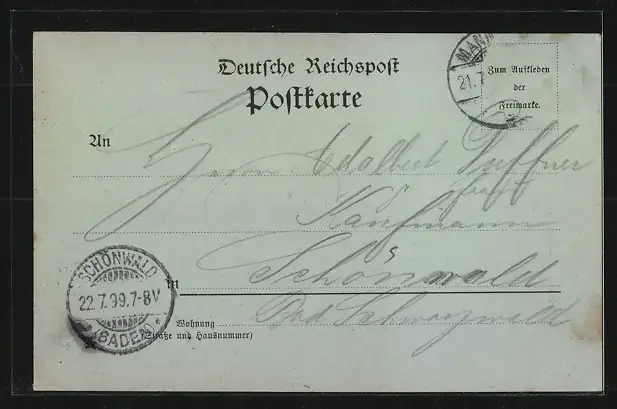 Deutsche Reichspost
Postkarte
MANN
21.7
Zum Aufkleben
der
Freimarke.
An
Herrn Adalbert Duffner
Kaufmann
in Schönwald
Bad. Schwarzwald
SCHÖNWALD
22.7.99.7-8V
(BADEN)
Wohnung
(Straße und Hausnummer)